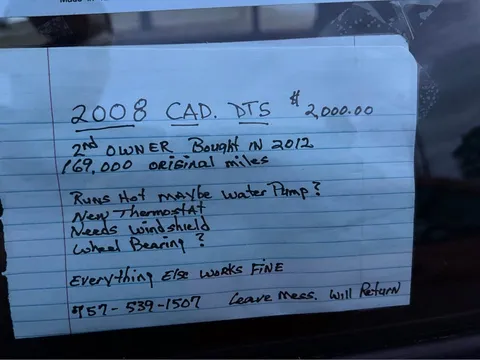 2008 CAD. DTS $2,000.00
2nd OWNER Bought IN 2012
169,000 original miles
Runs Hot Maybe Water Pump?
New Thermostat
Needs Windshield
Wheel Bearing?
Everything Else Works Fine
757-539-1507 Leave Mess. Will Return